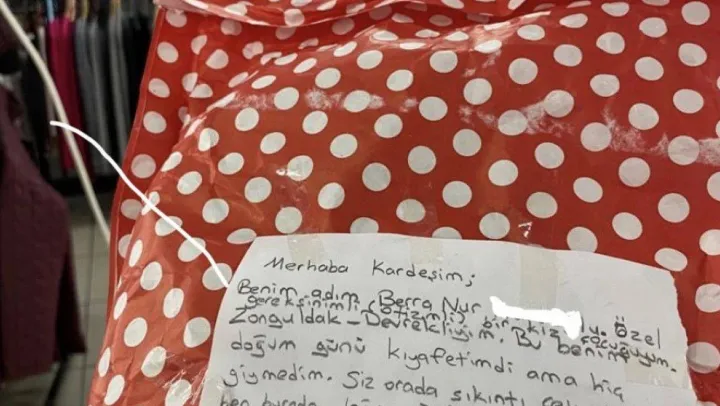 Merhaba Kardeşim;
Benim adım Berra Nur u. Özel
gereksinimli (otizmli) bir kız çocuğuyum.
Zonguldak - Devrekliyim. Bu benim
doğum günü kıyafetimdi ama hiç
giymedim. Siz orada sıkıntı
ben burada